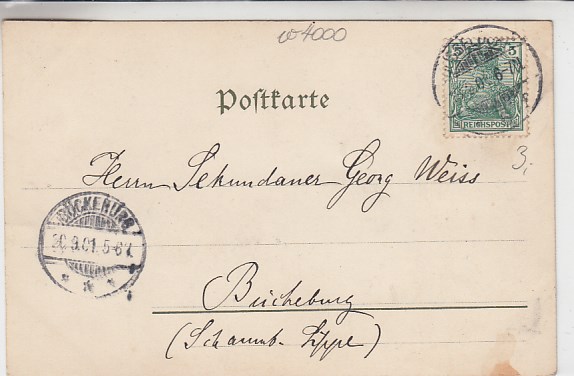 w4000
5 5
REICHSPOST
Postkarte
3,-
Herrn Sekundaner Georg Weiss
BÜCKEBURG
20.9.01.5-6N.
Bückeburg
(Schaumb. Lippe)